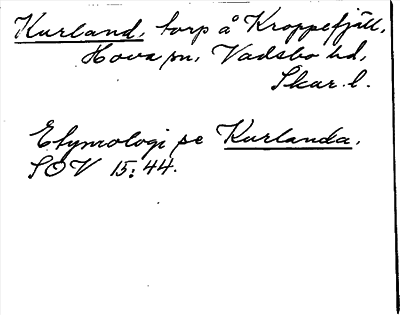 Kurland, torp å Kroppefjäll,
Hova sn, Vadsbo hd,
Skar. l.
Etymologi se Kurlanda,
SOV 15:44.